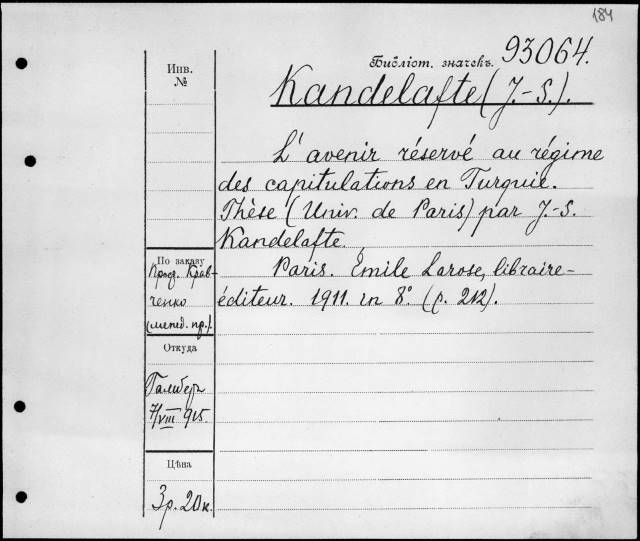 184
Библіот. значекъ. 93064.
Инв.
№
Kandelafte (J.-S.).
L'avenir réservé au régime
des capitulations en Turquie.
Thèse (Univ. de Paris) par J.-S.
Kandelafte.
Paris. Émile Larose, libraire-
éditeur. 1911. in 8°. (p. 212).
По заказу
Проф. Крав-
ченко
Откуда
7/VIII 915.
Цѣна
3 р. 20 к.